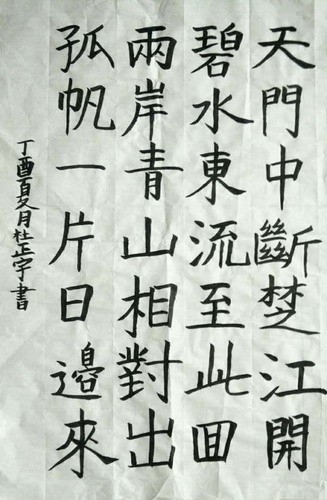 天門中斷楚江開
碧水東流至此回
兩岸青山相對出
孤帆一片日邊來
丁酉夏月杜正宇書